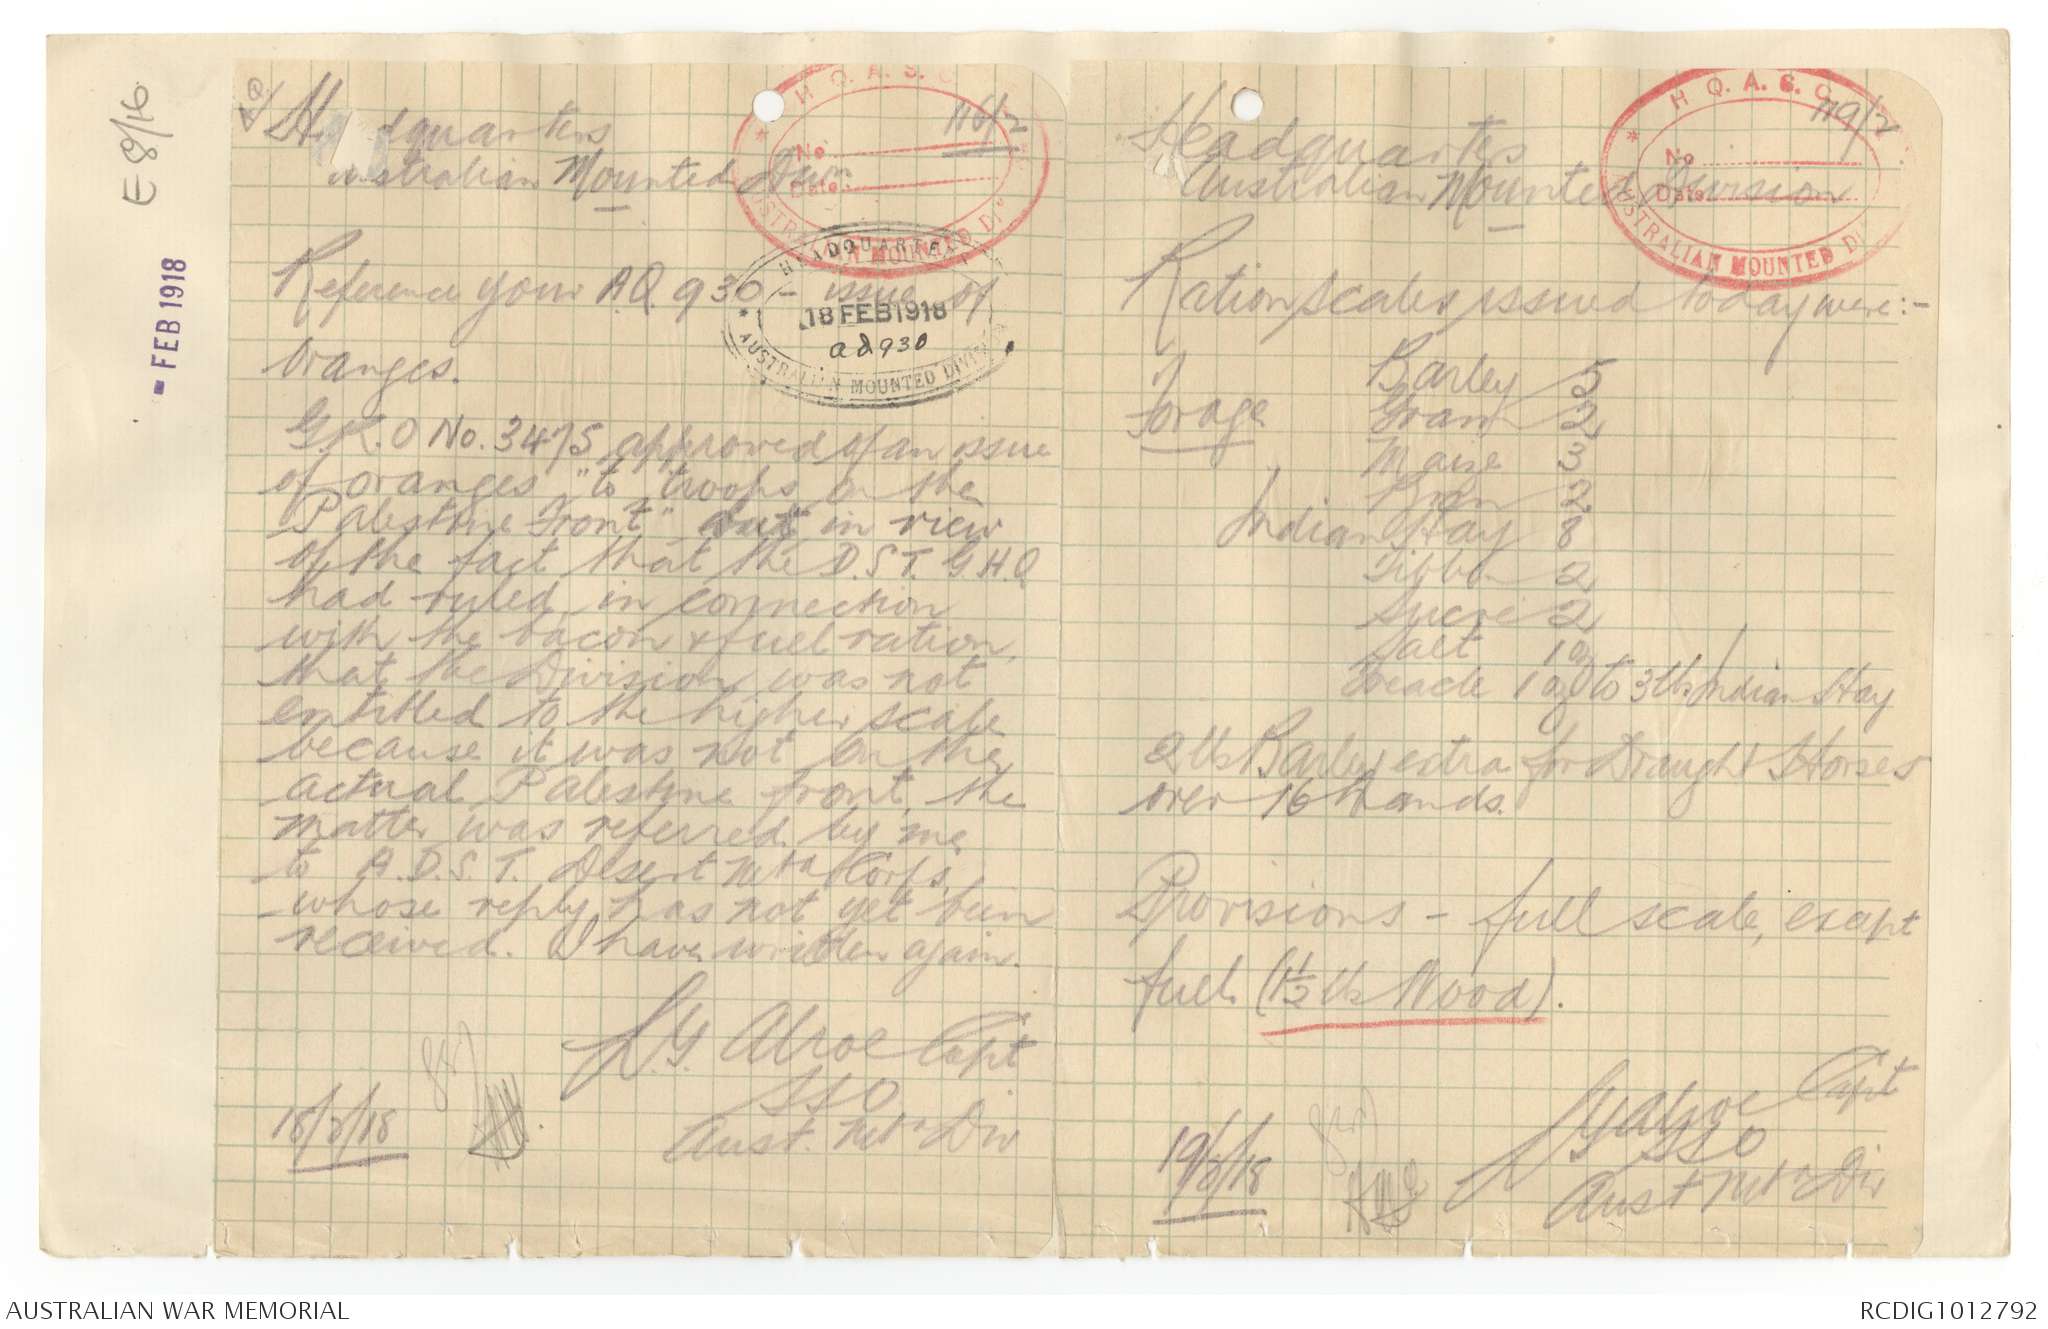 E8/16
- FEB 1918
AQ
Headquarters
Australian Mounted Div.
H.Q. A.S.C.
No
Date
AUSTRALIAN MOUNTED DIV
116/2
HEADQUARTERS
18 FEB 1918
aq930
AUSTRALIAN MOUNTED DIVISION
Reference your A.Q 930 - issue of
oranges.
G.R.O No. 3475 approved of an issue
of oranges "to troops on the
Palestine Front" but in view
of the fact that the D.S.T. G.H.Q
had ruled, in connection
with the bacon & fuel ration,
that the Division was not
entitled to the higher scale
because it was not on the
actual Palestine front, the
matter was referred by me
to A.D.S.T. Desert Mtd Corps,
whose reply has not yet been
received. I have written again.
Capt
SSO
Aust. Mtd Div
18/2/18
H.Q. A.S.C.
No
Date
AUSTRALIAN MOUNTED DIV
119/2
Headquarters
Australian Mounted Division
Ration scales issued today were:-
Forage
Barley 5
Gram 2
Maize 3
Bran 2
Indian Hay 8
Tibben 2
Sucre 2
Salt 1 oz
Treacle 1 oz to 3 lbs Indian Hay
2 lbs Barley extra for Draught Horses
over 16 Hands.
Provisions - full scale, except
fuel (1½ lbs Wood).
Capt
SSO
Aust Mtd Div
19/2/18
AUSTRALIAN WAR MEMORIAL
RCDIG1012792